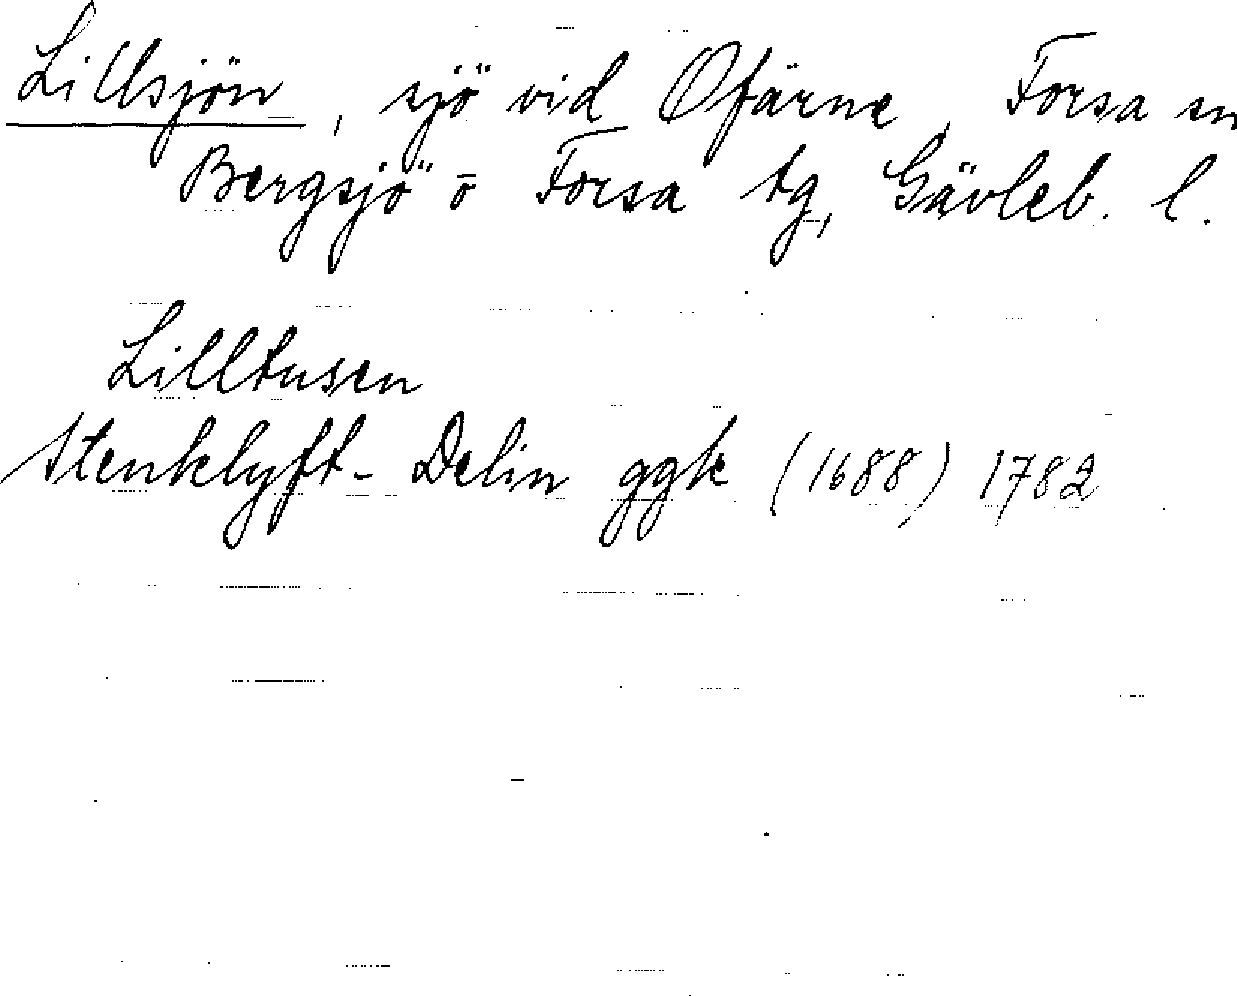 Lillsjön, sjö vid Ofärne, Forsa sn
Bergsjö o Forsa tg, Gävleb. l.
Lilltusen
Stenklyft- Delin ggk (1688) 1782